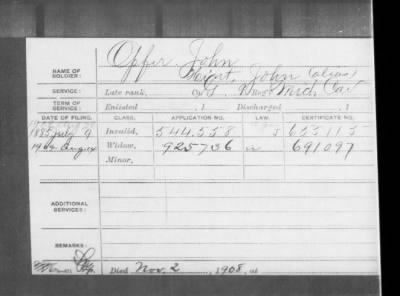 Opfer, John
NAME OF SOLDIER: John (alias)
SERVICE: Late rank, Co. Reg't Mich Cav
TERM OF SERVICE: Enlisted , 1 Discharged , 1
DATE OF FILING. CLASS. APPLICATION NO. LAW. CERTIFICATE NO.
1885 July 9 Invalid, 544,558
1908 Widow, 925736 691097
Minor,
ADDITIONAL SERVICES:
REMARKS:
Died Nov. 2, 1908, at